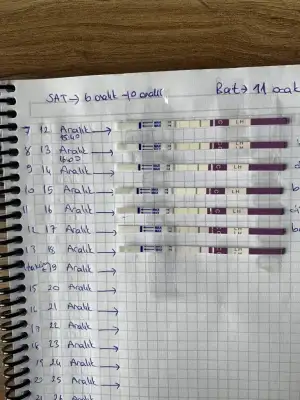 SAT → 6 aralık - 10 aralık Bat → 11 ocak
7 12 Aralık →
15:40
8 13 Aralık →
9 14 Aralık →
10 15 Aralık →
11 16 Aralık →
12 17 Aralık →
13 18 Aralık →
19 Aralık →
15 20 Aralık →
16 21 Aralık →
17 22 Aralık →
18 23 Aralık →
19 24 Aralık →
25 Aralık →
LH
LH
LH
LH
LH
LH
LH